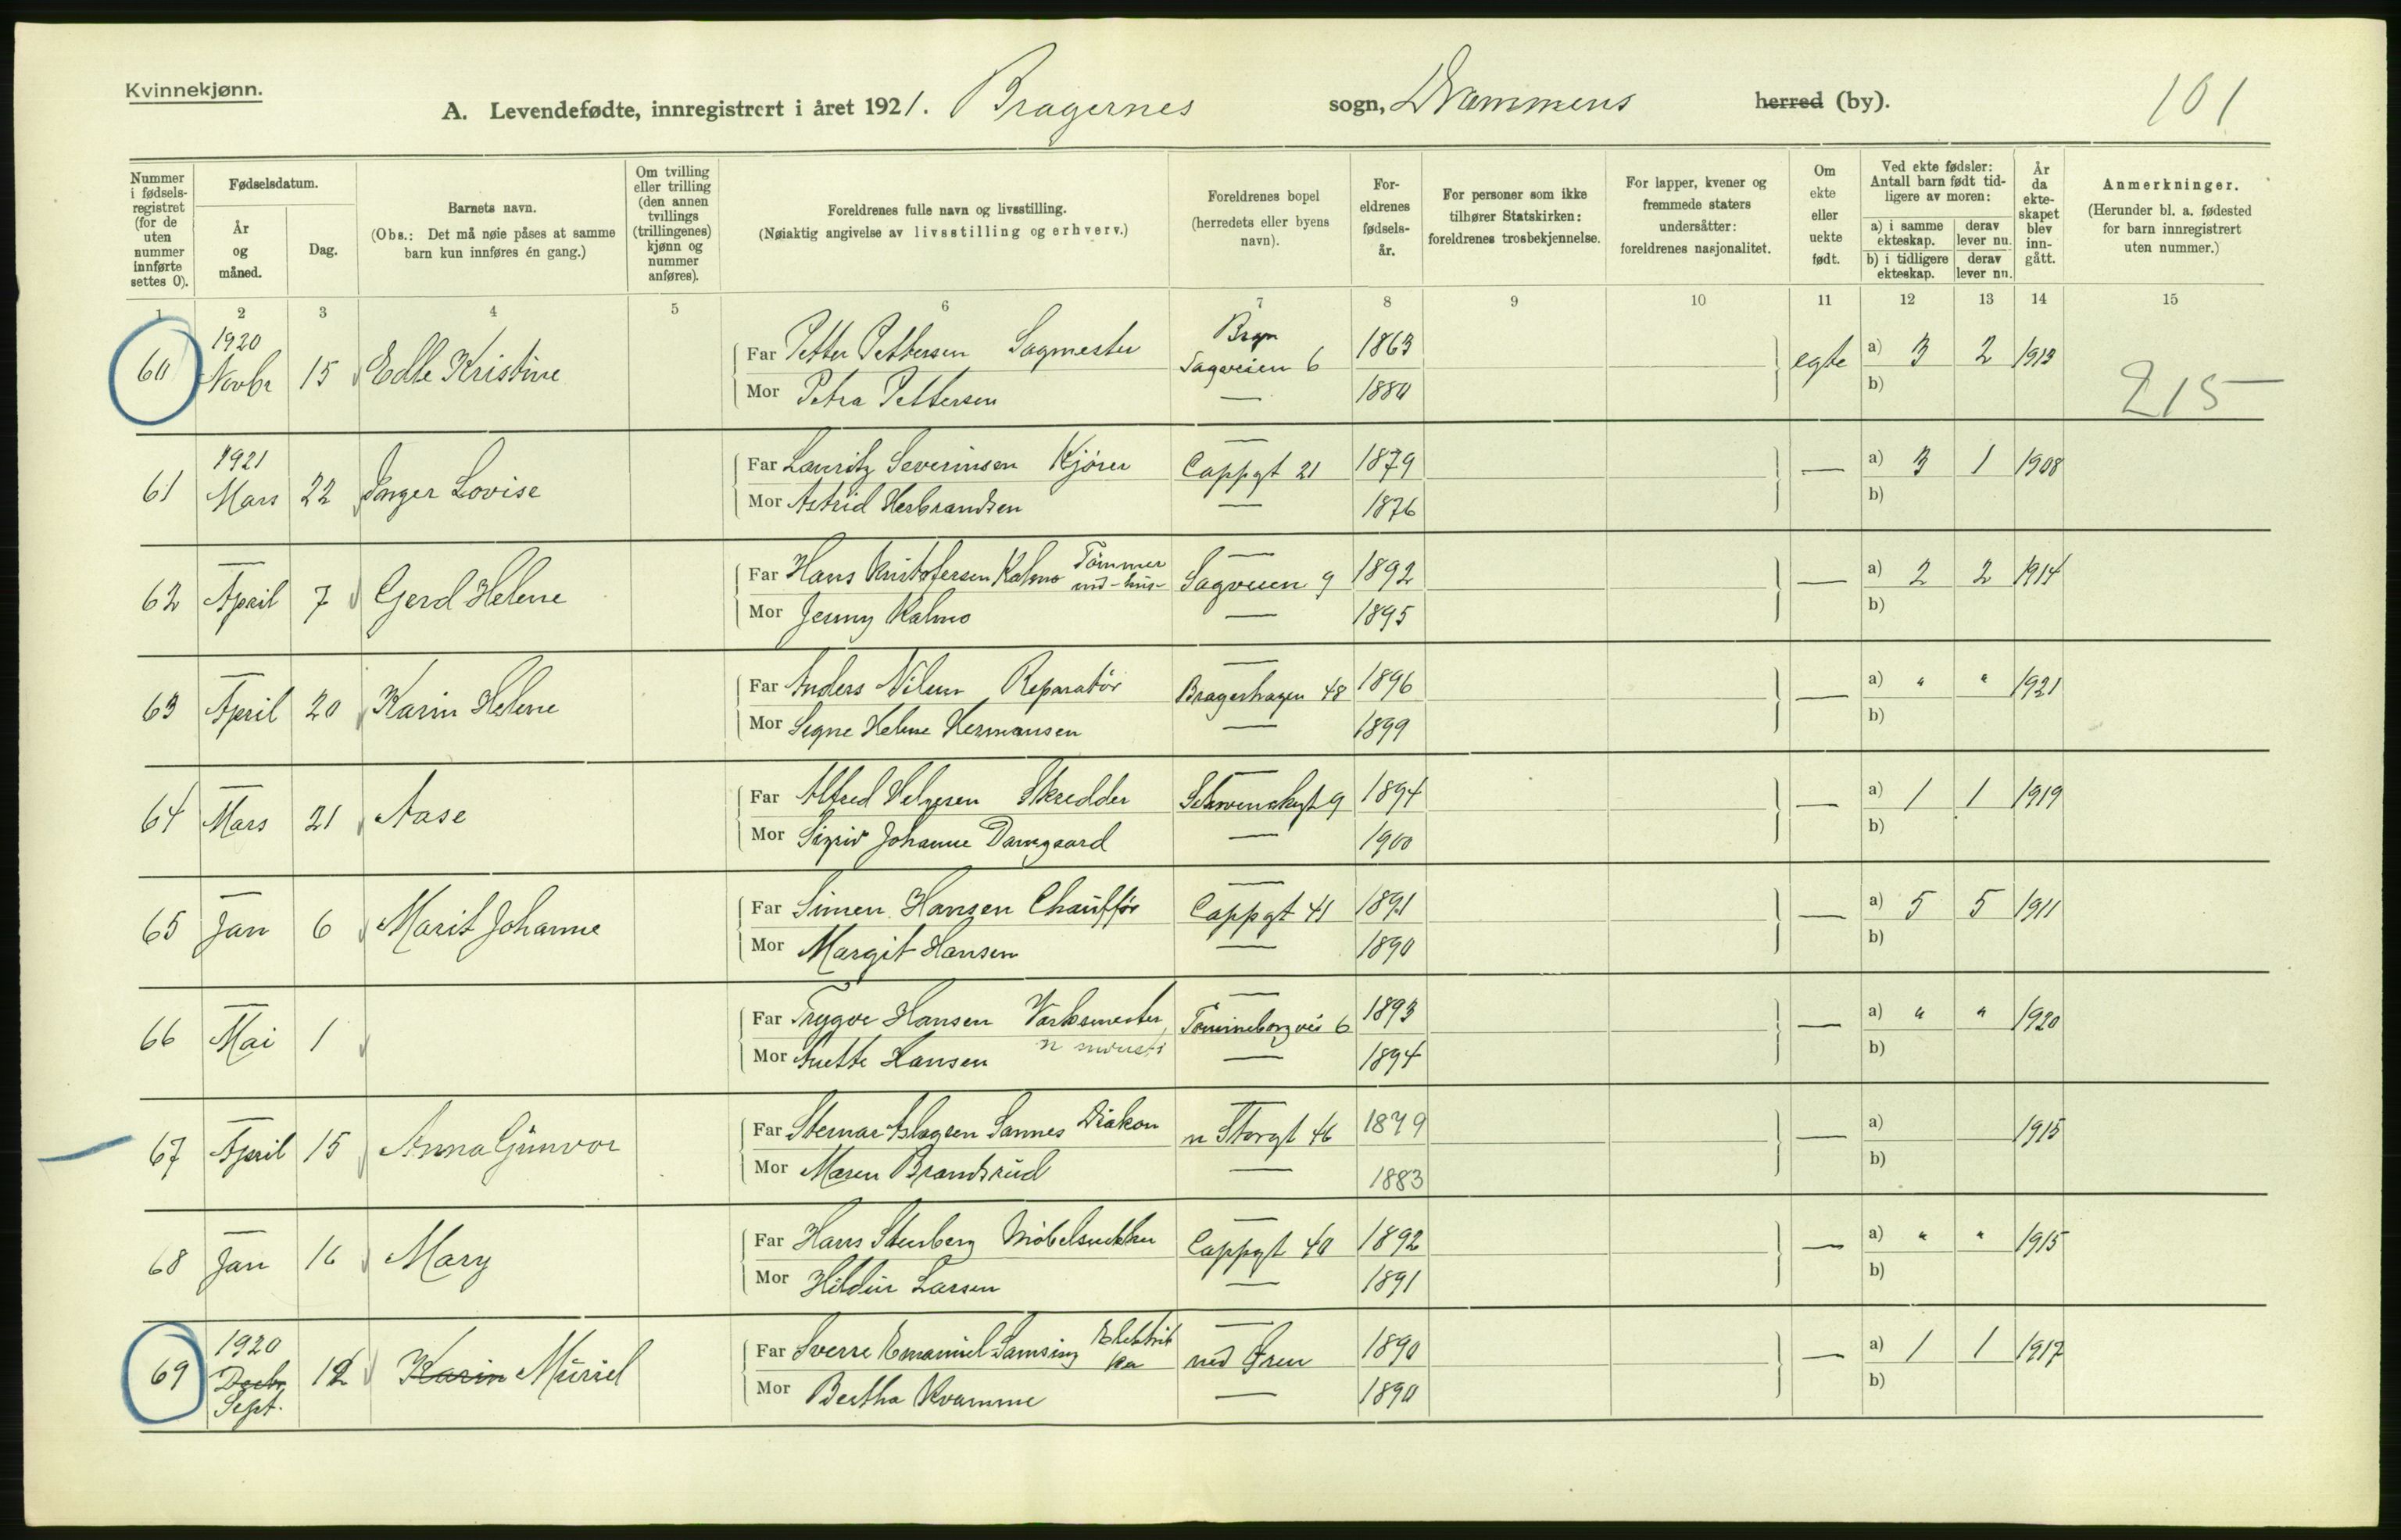 Kvinnekjønn.
A. Levendefødte, innregistrert i året 1921. Bragernes sogn, Drammens herred (by). 101
Nummer i fødsels-registret (for de uten nummer innførte settes 0).
Fødselsdatum.
År og måned.
Dag.
Barnets navn.
(Obs.: Det må nøie påses at samme barn kun innføres én gang.)
Om tvilling eller trilling (den annen tvillings (trillingenes) kjønn og nummer anføres).
Foreldrenes fulle navn og livsstilling.
(Nøiaktig angivelse av livsstilling og erhverv.)
Foreldrenes bopel (herredets eller byens navn).
For-eldrenes fødsels-år.
For personer som ikke tilhører Statskirken: foreldrenes trosbekjennelse.
For lapper, kvener og fremmede staters undersåtter: foreldrenes nasjonalitet.
Om ekte eller uekte født.
Ved ekte fødsler: Antall barn født tid-ligere av moren:
a) i samme ekteskap. derav lever nu.
b) i tidligere ekteskap. derav lever nu.
År da ekte-skapet blev inn-gått.
Anmerkninger.
(Herunder bl. a. fødested for barn innregistrert uten nummer.)
1 2 3 4 5 6 7 8 9 10 11 12 13 14 15
60 1920 Novbr 15 Edle Kristine Far Petter Pettersen Sagmester Brgn Sagveien 6 1863 egte a) 3 2 1913
Mor Petra Pettersen — 1880 b) 215
61 1921 Mars 22 Inger Lovise Far Lauritz Severinsen Kjører — Cappgt 21 1879 — a) 3 1 1908
Mor Astrid Herbrandsen — 1876 b)
62 — April 7 Gerd Helene Far Hans Kristofersen Kalmo Tømmer — Sagveien 9 1892 — a) 2 2 1914
Mor Jenny Kalmo — 1895 b)
63 — April 20 Karin Helene Far Anders Nilsen Reparatør — Bragerhagen 48 1896 — a) " " 1921
Mor Signe Helene Hermansen — 1899 b)
64 — Mars 21 Aase Far Alfred Helgesen Skredder — Schwenckegt 9 1894 — a) 1 1 1919
Mor Sigrid Johanne Damgaard — 1900 b)
65 — Jan 6 Marit Johanne Far Simen Hansen Chauffør — Cappgt 41 1891 — a) 5 5 1911
Mor Margit Hansen — 1890 b)
66 — Mai 1 Far Trygve Hansen Verksmester — 6 1893 — a) " " 1920
Mor Anette Hansen — 1894 b)
67 — April 15 Anna Gunvor Far Aslagsen Sannes Diakon — n Storgt 46 1879 — a) 1915
Mor Maren Brandsrud — 1883 b)
68 — Jan 16 Mary Far Hans Stenberg Møbelsnekker — Cappgt 40 1892 — a) " " 1915
Mor Hildur Larsen — 1891 b)
69 1920 Decbr Sept. 12 Karin Muriel Far Sverre Emanuel Samsing Elektriker — ned Øren 1890 — a) 1 1 1917
Mor Bertha Kvamme — 1890 b)